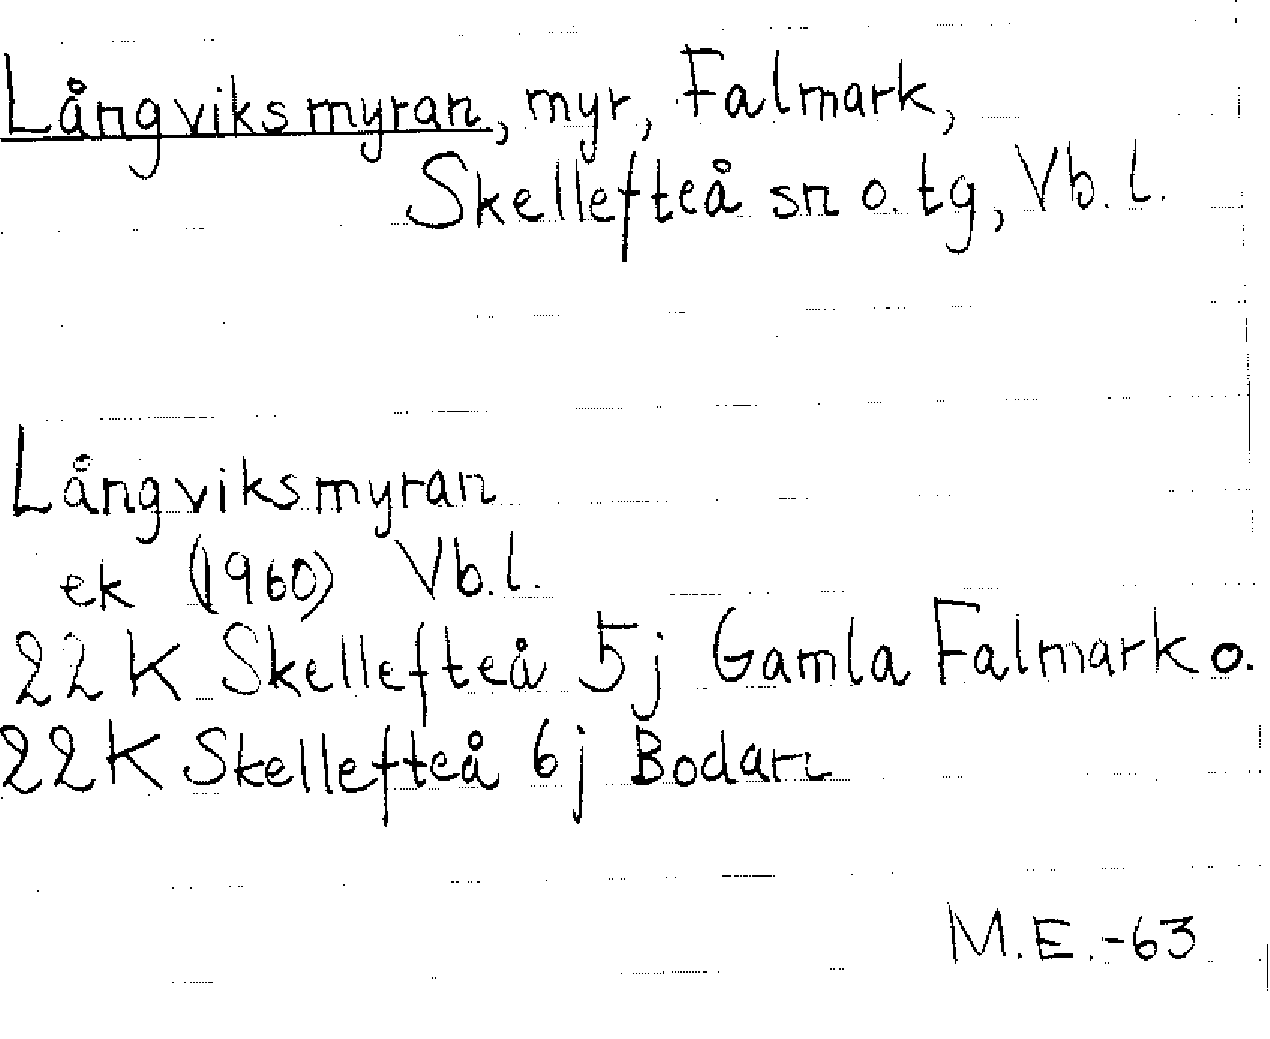 Långviksmyran, myr, Falmark,
Skellefteå sn o. tg, Vb. l.
Långviksmyran
ek (1960) Vb.l.
22K Skellefteå 5j Gamla Falmark o.
22K Skellefteå 6j Bodan
M.E.-63